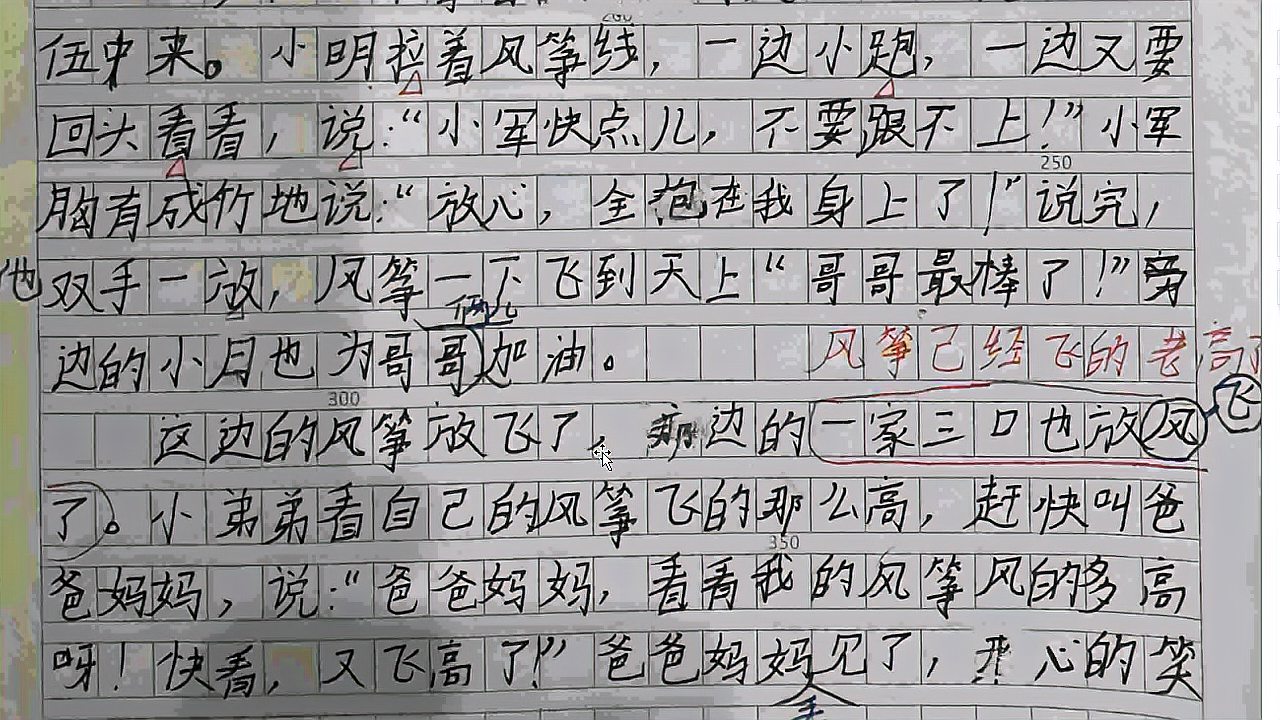 伍中来。小明拉着风筝线，一边小跑，一边又要
回头看看，说：“小军快点儿，不要跟不上！”小军
250
胸有成竹地说：“放心，全包在我身上了！”说完，
他双手一放，风筝一下飞到天上“哥哥最棒了！”旁
俩儿
边的小月也为哥哥加油。 风筝已经飞的老高了
300
这边的风筝放飞了，那边的一家三口也放风飞
了。小弟弟看自己的风筝飞的那么高，赶快叫爸
350
爸妈妈，说：“爸爸妈妈，看看我的风筝风的多高
呀！快看，又飞高了！”爸爸妈妈见了，开心的笑